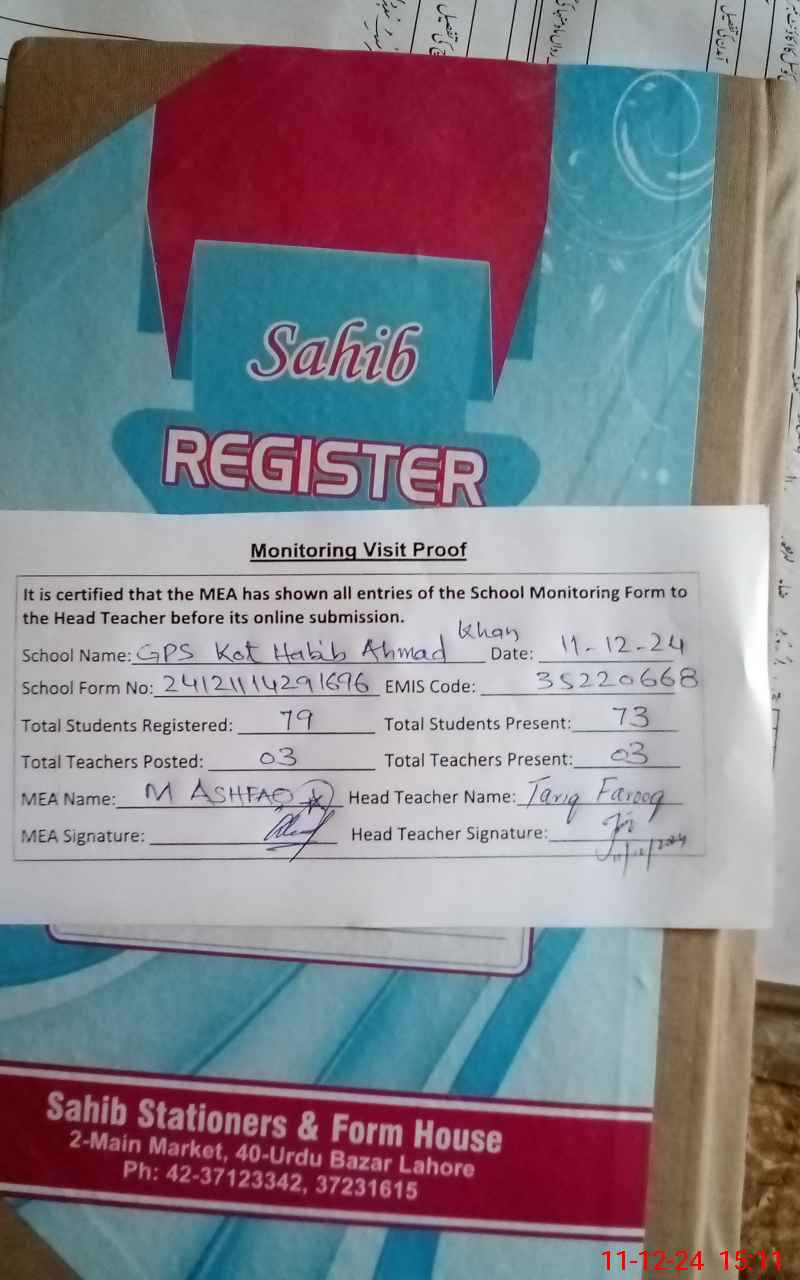 Sahib
REGISTER
Monitoring Visit Proof
It is certified that the MEA has shown all entries of the School Monitoring Form to
the Head Teacher before its online submission.
School Name: GPS Kot Habib Ahmad Khan Date: 11-12-24
School Form No: 24121114291696 EMIS Code: 35220668
Total Students Registered: 79 Total Students Present: 73
Total Teachers Posted: 03 Total Teachers Present: 03
MEA Name: M ASHFAQ Head Teacher Name: Tariq Farooq
MEA Signature: Head Teacher Signature:
11/12/2024
Sahib Stationers & Form House
2-Main Market, 40-Urdu Bazar Lahore
Ph: 42-37123342, 37231615
11-12-24 15:11